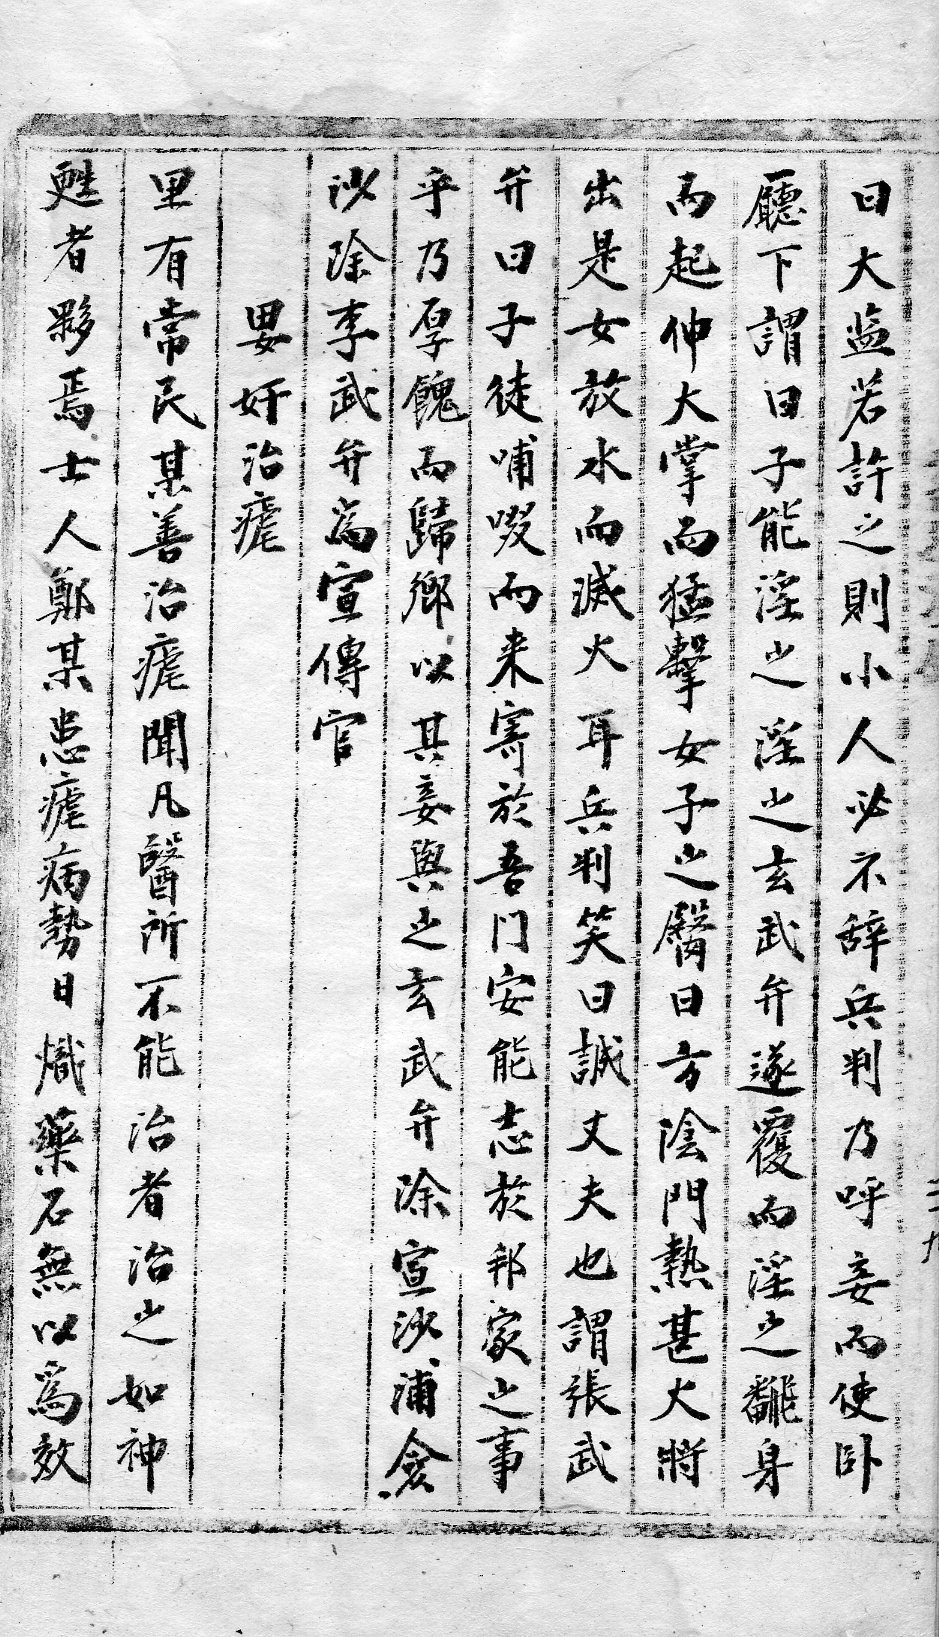 曰大監若許之則小人必不辞兵判乃呼妾而使卧
廳下謂曰子能淫之淫之玄武弁遂覆而淫之飜身
而起伸大掌而猛擊女子之臀曰方陰門熱甚火將
出是女放水而滅火耳兵判笑曰誠丈夫也謂張武
弁曰子徒哺啜而来寄於吾門安能志於邦家之事
乎乃厚餽而歸鄉以其妾與之玄武弁除宣沙浦僉
沙除李武弁為宣傳官
畢奸治瘧
里有常民某善治瘧聞凡醫所不能治者治之如神
甦者夥焉士人鄭某患瘧病勢日熾藥石無以爲效